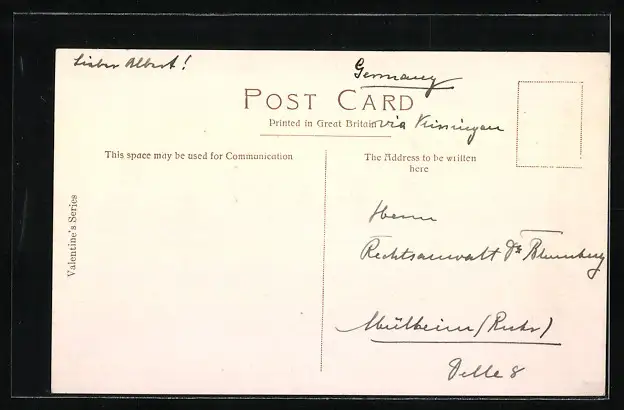 Lieber Albert!
Germany
POST CARD
Printed in Great Britain
via Vlissingen
This space may be used for Communication
The Address to be written
here
Valentine's Series
Herrn
Rechtsanwalt Dr Blumberg
Mülheim (Ruhr)
Delle 8